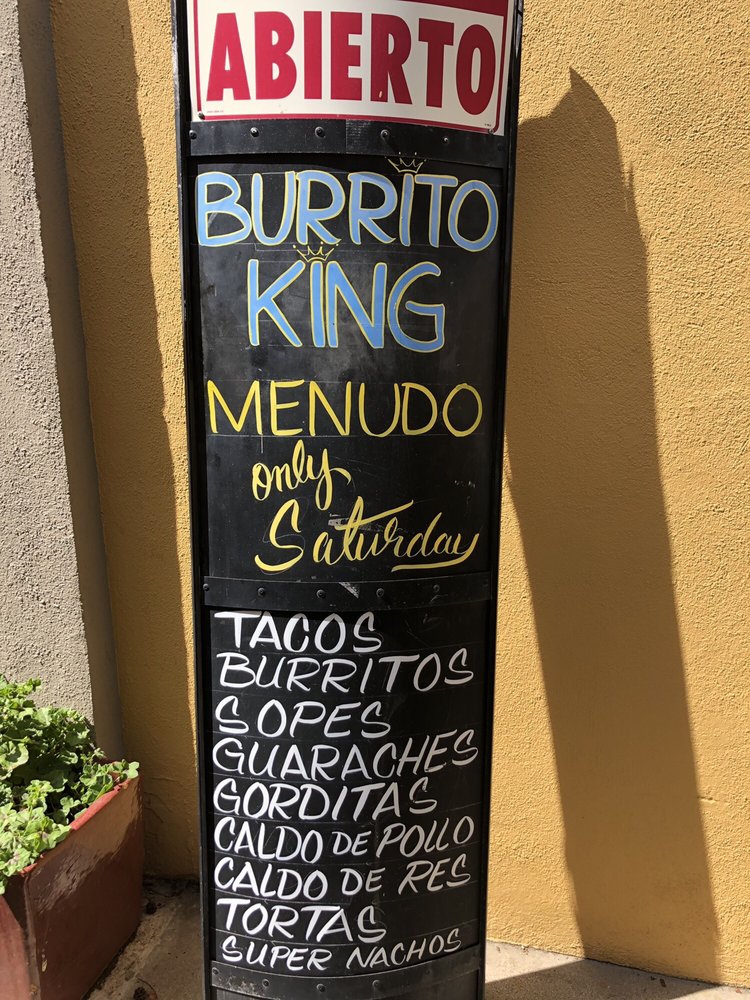 ABIERTO
BURRITO
KING
MENUDO
only
Saturday
TACOS
BURRITOS
SOPES
GUARACHES
GORDITAS
CALDO DE POLLO
CALDO DE RES
TORTAS
SUPER NACHOS